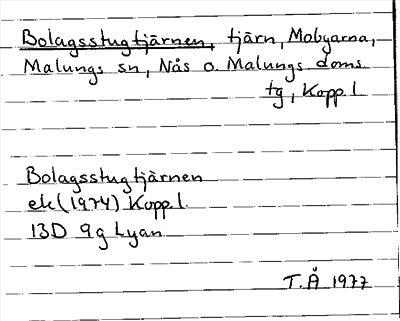 Bolagsstugtjärnen, tjärn, Mobyarna,
Malungs sn, Nås o. Malungs doms.
tg, Kopp.l
Bolagsstugtjärnen
ek(1974) Kopp.l.
13D 9g Lyan
T.Å 1977